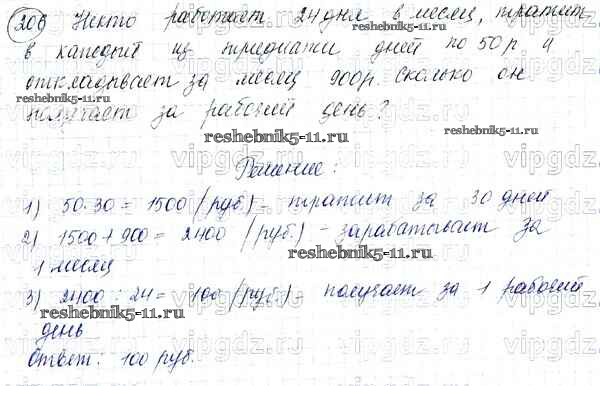 206 Некто работает 24 дня в месяц, тратит
в каждый из тридцати дней по 50 р и
откладывает за месяц 900р. Сколько он
получает за рабочий день?
reshebnik5-11.ru
reshebnik5-11.ru
reshebnik5-11.ru
vipgdz.ru vipgdz.ru vipgdz
Решение:
1) 50·30 = 1500 (руб) - тратит за 30 дней
2) 1500+900 = 2400 (руб.) - зарабатывает за
1 месяц
reshebnik5-11.ru
3) 2400 : 24 = 100 (руб) - получает за 1 рабочий
день
reshebnik5-11.ru
Ответ: 100 руб.
vipgdz.ru vipgdz.ru vipgdz